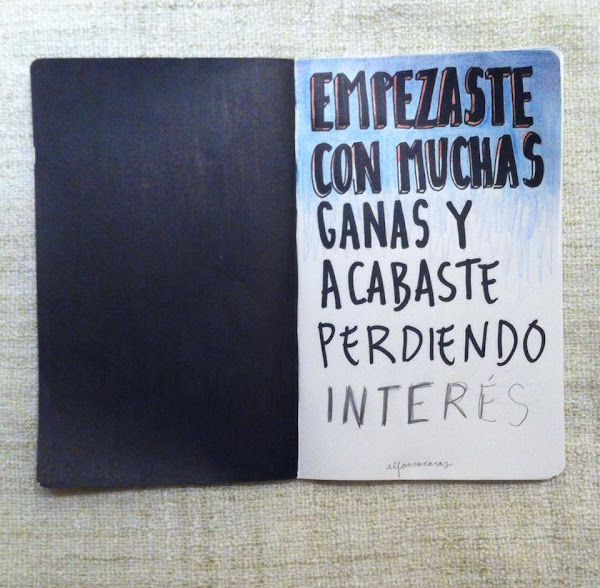 EMPEZASTE
CON MUCHAS
GANAS Y
ACABASTE
PERDIENDO
INTERÉS
alfonsocasas